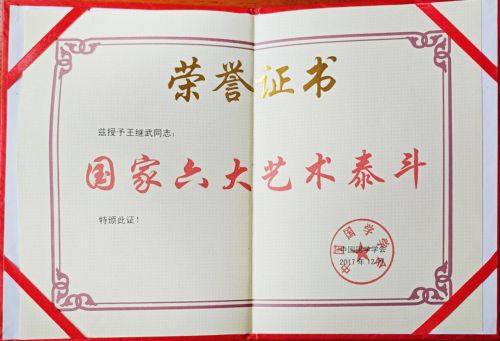 荣誉证书
兹授予王继武同志：
国家六大艺术泰斗
特颁此证！
中国国学学会
中国国学学会
2017年12月